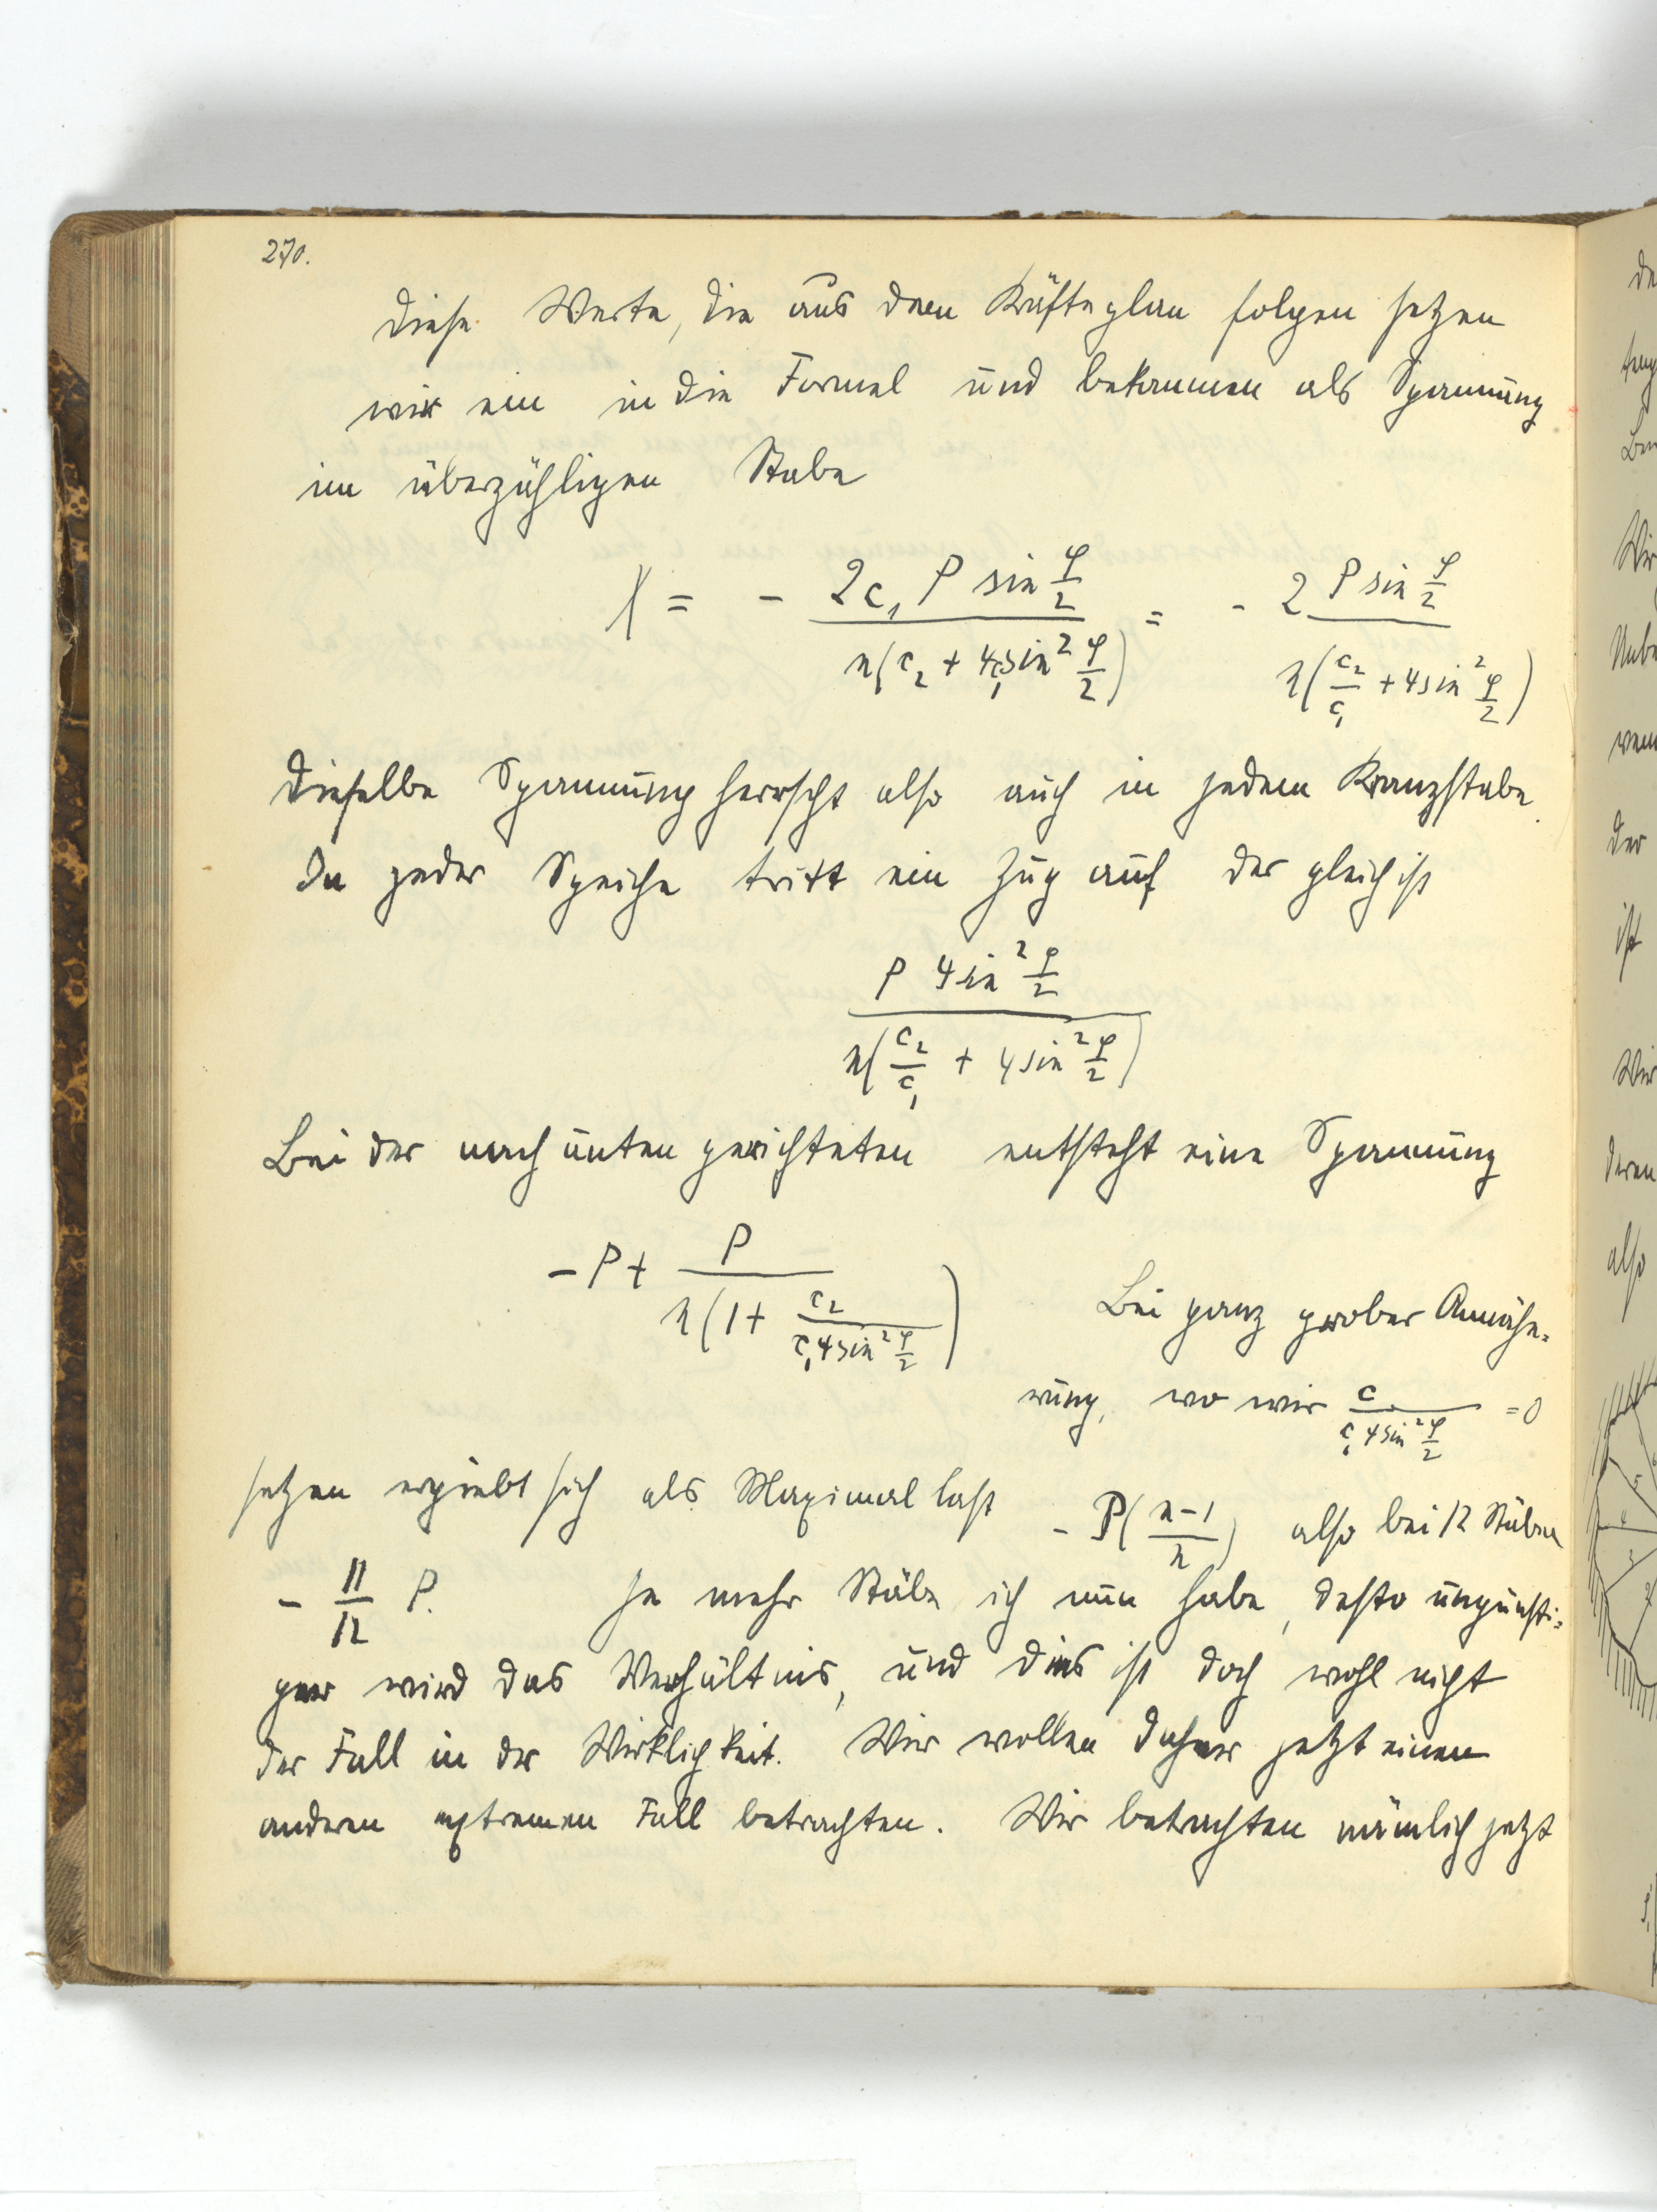 270.
Diese Werte, die aus dem Kräfteplan folgen setzen
wir ein in die Formel und bekommen als Spannung
im überzähligen Stabe
X = - 2c₁ P sin φ/2 / n(c₂ + 4c₁ sin² φ/2) = - 2 P sin φ/2 / n(c₂/c₁ + 4 sin² φ/2)
Dieselbe Spannung herrscht also auch in jedem Kranzstabe.
In jeder Speiche tritt ein Zug auf der gleich ist
P 4 sin² φ/2 / n(c₂/c₁ + 4 sin² φ/2)
Bei der nach unten gerichteten entsteht eine Spannung
- P + P / n(1 + c₂ / c₁ 4 sin² φ/2)
Bei ganz grober Annähe-
rung, wo wir c / c₁ 4 sin² φ/2 = 0
setzen ergiebt sich als Maximallast - P(n-1 / n) also bei 12 Stäben
- 11/12 P. Je mehr Stäbe ich nun habe, desto ungünsti-
ger wird das Verhältnis, und dies ist doch wohl nicht
der Fall in der Wirklichkeit. Wir wollen daher jetzt einen
anderen extremen Fall betrachten. Wir betrachten nämlich jetzt